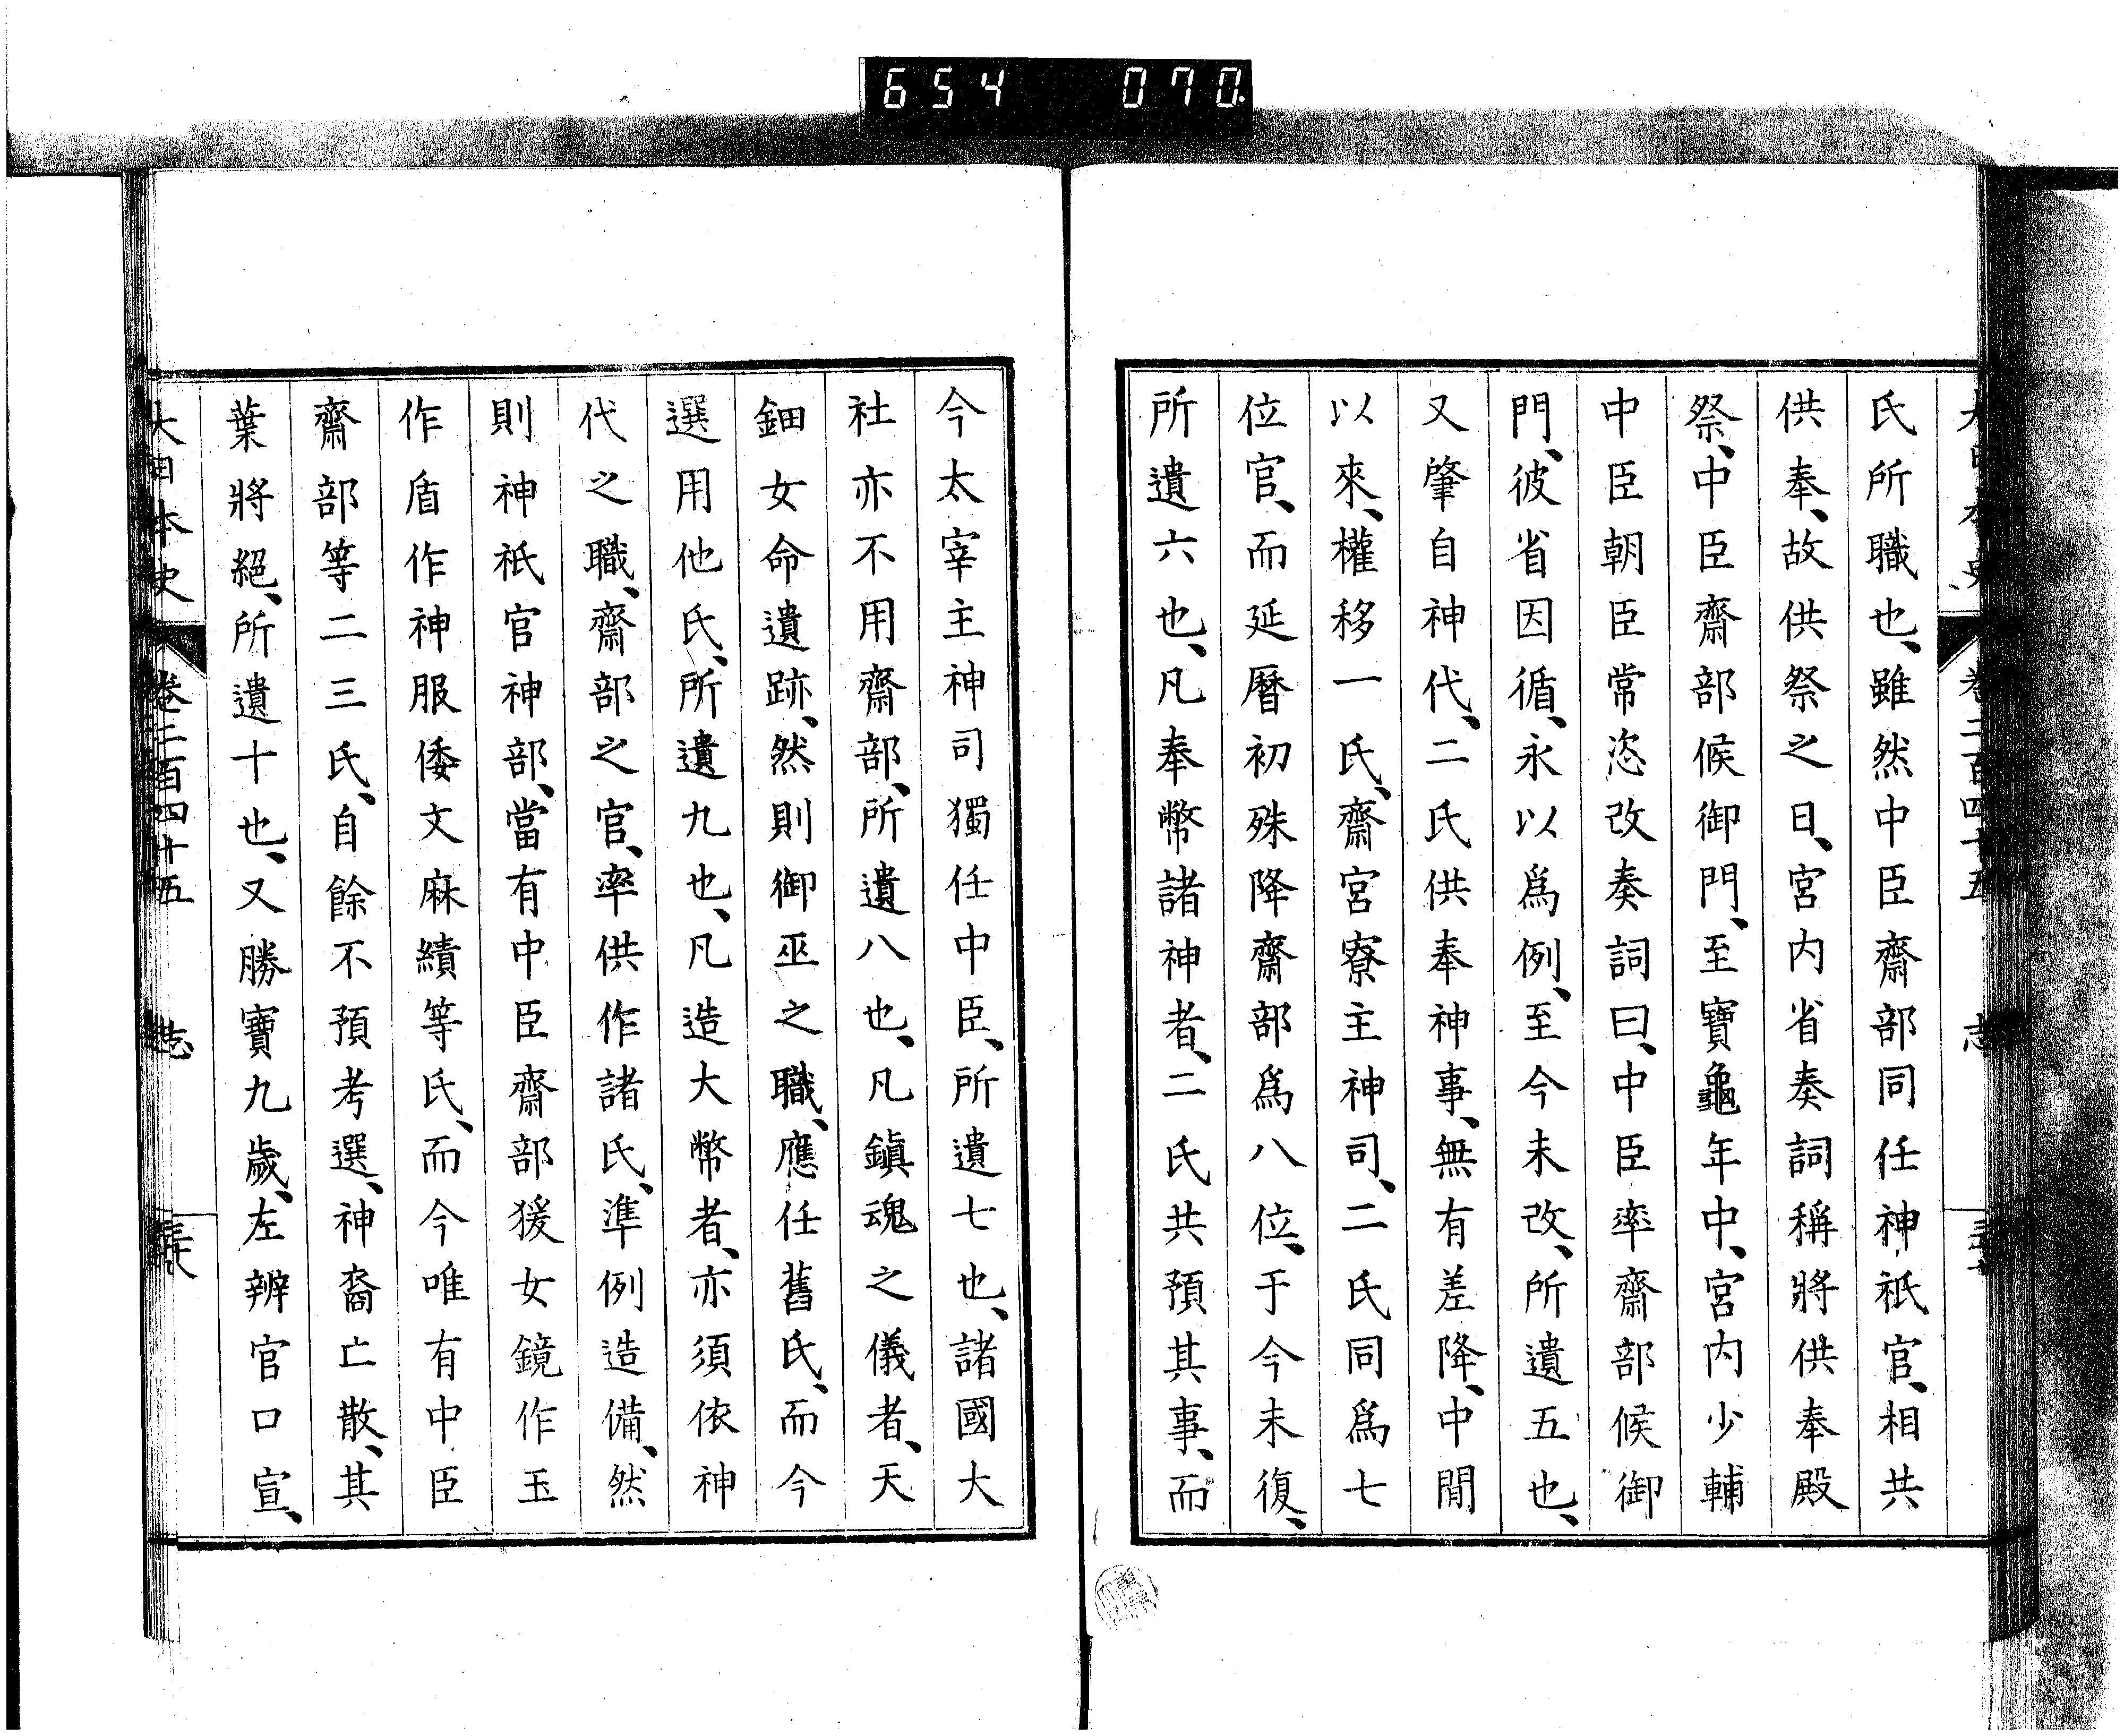 654 070
氏所職也、雖然中臣齋部同任神祇官、相共
供奉、故供祭之日、宮内省奏詞稱將供奉殿
祭、中臣齋部候御門、至寶龜年中、宮内少輔
中臣朝臣常恣改奏詞曰、中臣率齋部候御
門、彼省因循、永以爲例、至今未改、所遺五也、
又肇自神代、二氏供奉神事、無有差降、中間
以來、權移一氏、齋宮寮主神司、二氏同爲七
位官、而延曆初殊降齋部爲八位、于今未復、
所遺六也、凡奉幣諸神者、二氏共預其事、而
今太宰主神司獨任中臣、所遺七也、諸國大
社亦不用齋部、所遺八也、凡鎭魂之儀者、天
鈿女命遺跡、然則御巫之職、應任舊氏、而今
選用他氏、所遺九也、凡造大幣者、亦須依神
代之職、齋部之官、率供作諸氏、準例造備、然
則神祇官神部、當有中臣齋部猨女鏡作玉
作盾作神服倭文麻績等氏、而今唯有中臣
齋部等二三氏、自餘不預考選、神裔亡散、其
葉將絕、所遺十也、又勝寶九歲、左辨官口宣、
大日本史 卷二百四十五 志